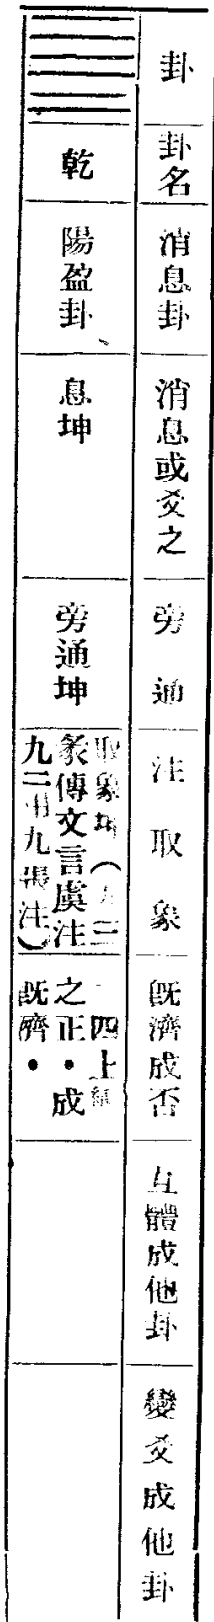 卦
卦名
消息卦
消息或爻之
旁通
注取象
既濟成否
互體成他卦
變爻成他卦
乾
陽盈卦
息坤
旁通坤
取象坤（
彖傳文言虞注
九二 九 注）
四上
之正・成
既濟・